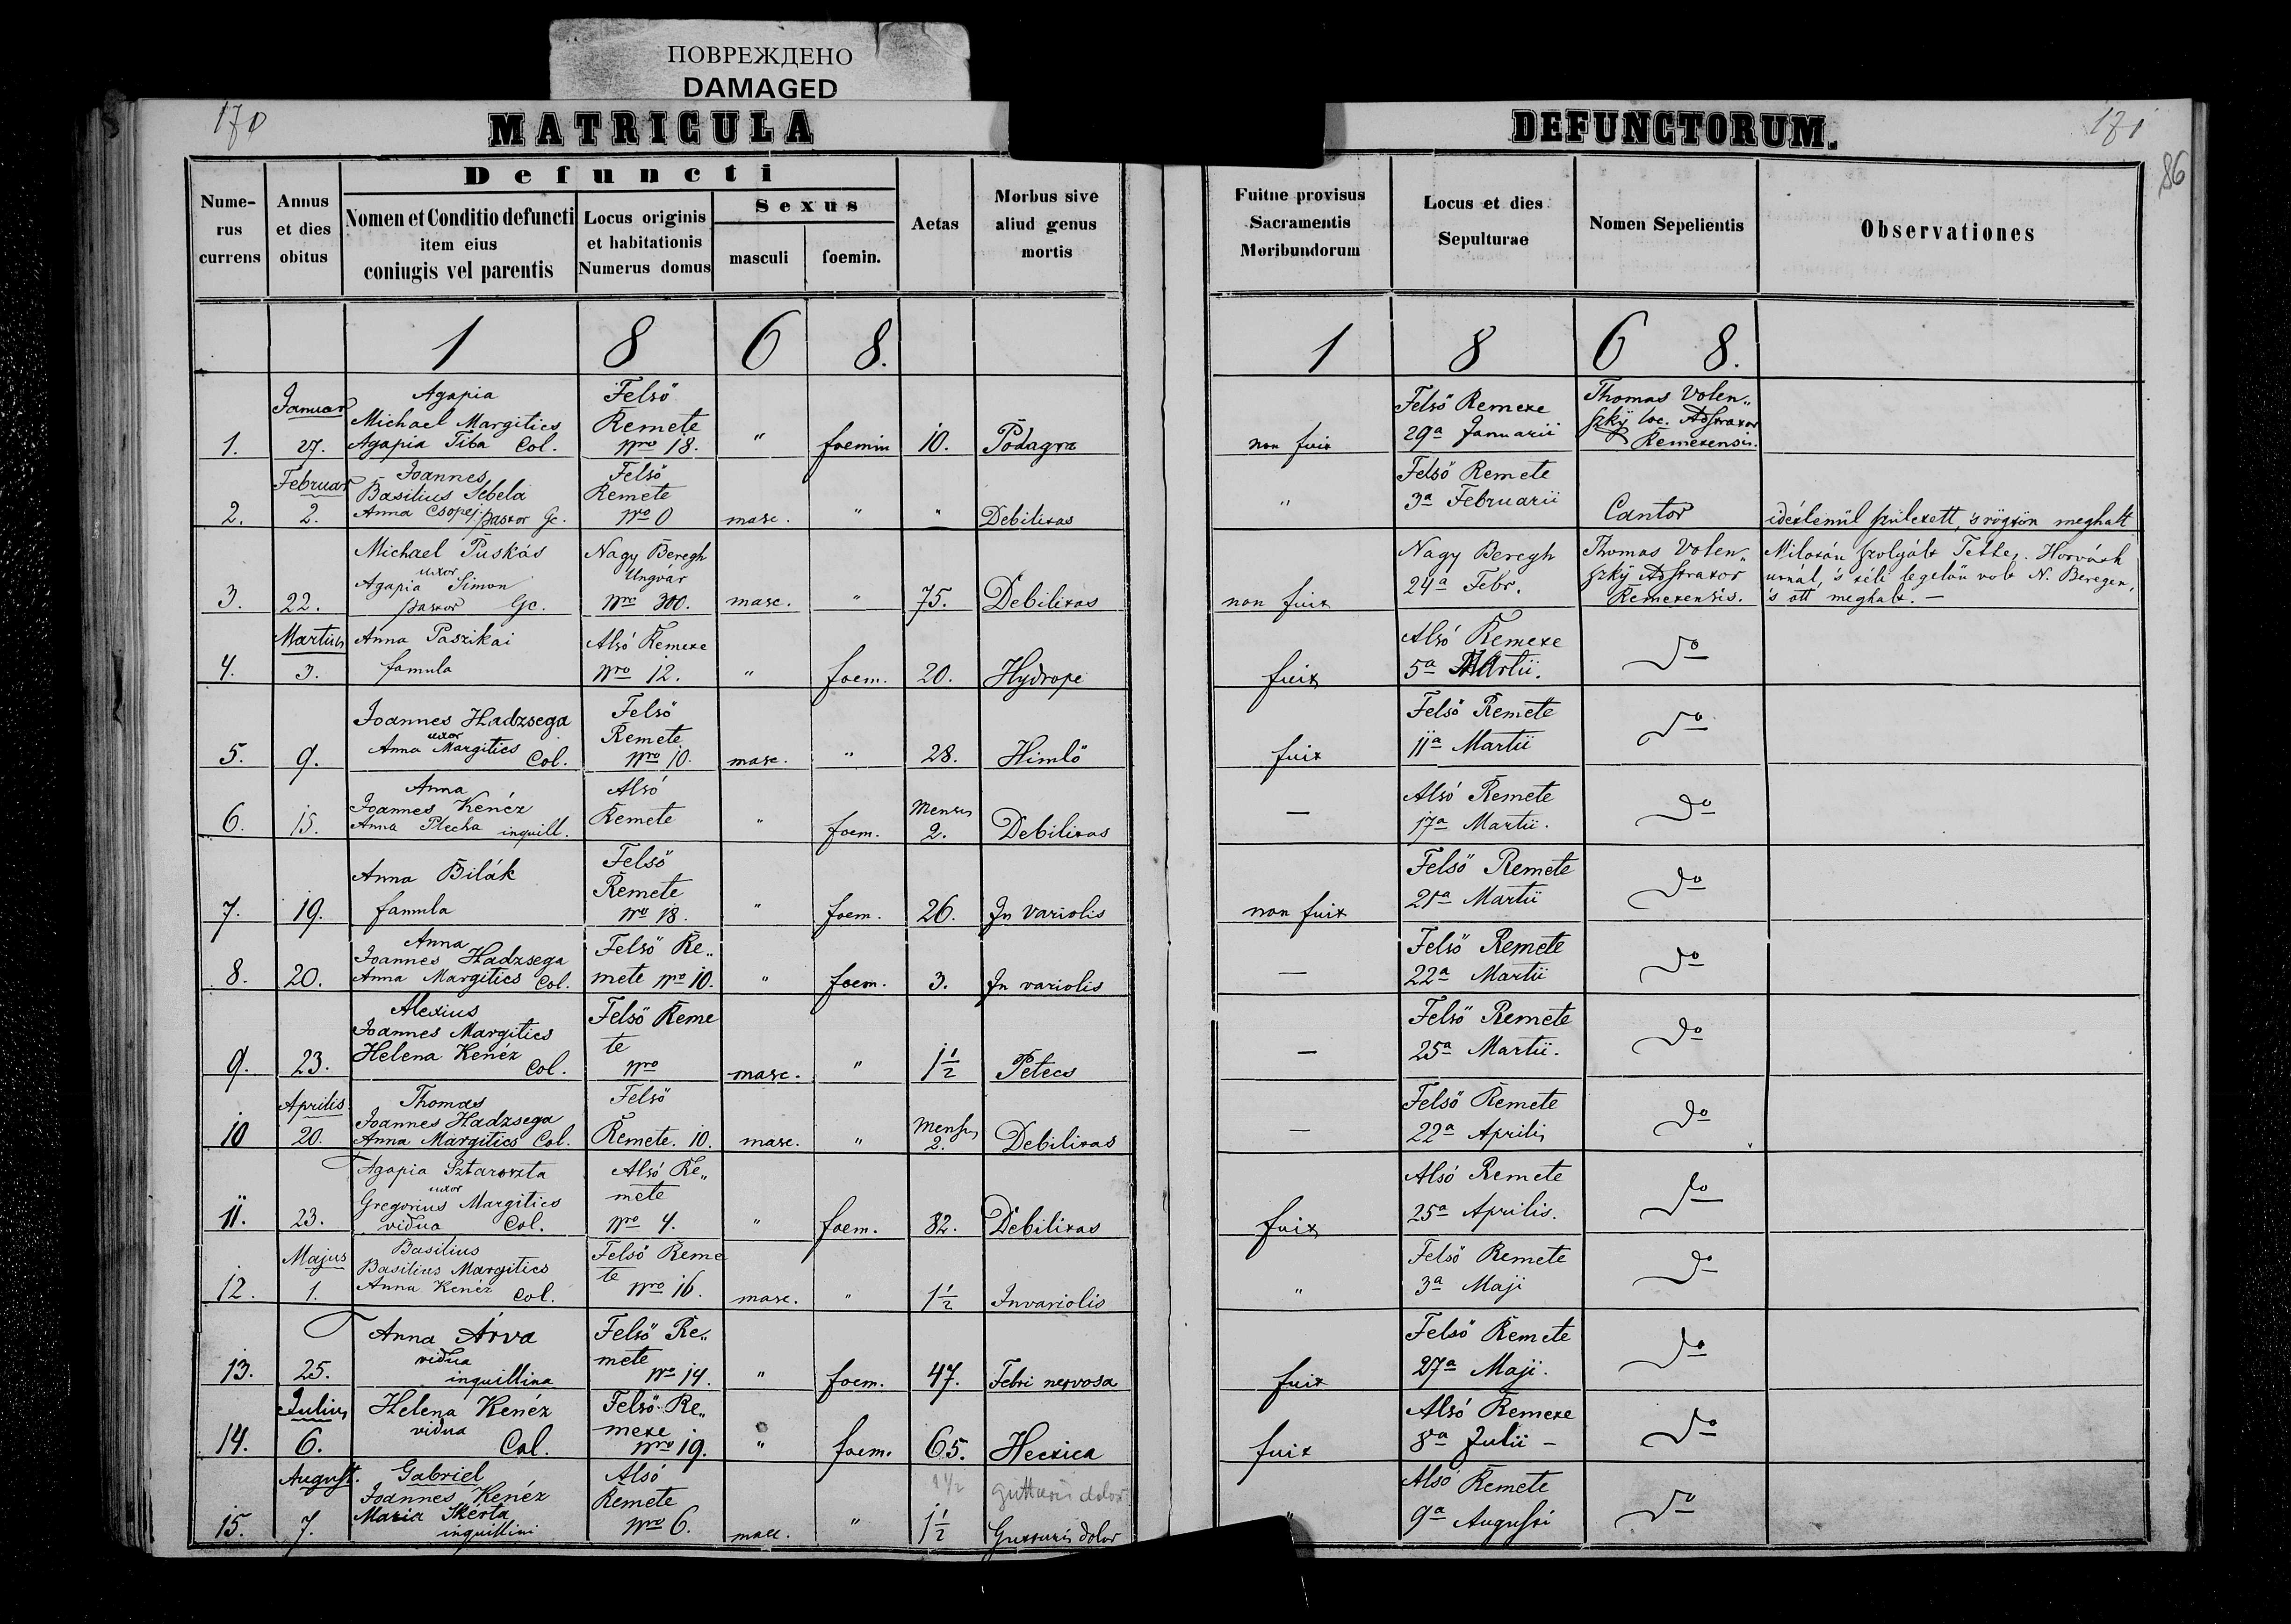 ПОВРЕЖДЕНО
DAMAGED
170
MATRICULA
Numerus currens
Annus et dies obitus
Defuncti
Nomen et Conditio defuncti item eius coniugis vel parentis
Locus originis et habitationis Numerus domus
Sexus
masculi
foemin.
Aetas
Morbus sive aliud genus mortis
1 8 6 8.
Januar
1. 27.
Agapia
Michael Margitics
Agapia Tiba Col.
Felső
Remete
nro 18.
" foemin 10. Podagra
Februar
2. 2.
Joannes
Basilius Sebela
Anna Csopej pastor Gc.
Felső
Remete
nro 0
masc. " " Debilitas
3. 22.
Michael Puskás
uxor
Agapia Simon
pastor Gc.
Nagy Beregh
Ungvár
nro 300.
masc. " 75. Debilitas
Martius
4. 3.
Anna Paszikai
famula
Alsó Remete
nro 12.
" foem. 20. Hydrope
5. 9.
Joannes Hadzsega
uxor
Anna Margitics Col.
Felső
Remete
nro 10.
masc. " 28. Himlő
6. 15.
Anna
Joannes Kenéz
Anna Plecha inquill.
Alsó
Remete
" foem.
Mensis
2. Debilitas
7. 19.
Anna Bilák
famula
Felső
Remete
nro 18.
" foem. 26. In variolis
8. 20.
Anna
Joannes Hadzsega
Anna Margitics Col.
Felső Re„
mete nro 10.
" foem. 3. In variolis
9. 23.
Alexius
Joannes Margitics
Helena Kenéz
Col.
Felső Reme
te
nro
masc. " 1 1/2 Petecs
Aprilis
10 20.
Thomas
Joannes Hadzsega
Anna Margitics Col.
Felső
Remete. 10.
masc. "
Mensis
2. Debilitas
11. 23.
Agapia Sztaroszta
uxor
Gregorius Margitics
vidua Col.
Alsó Re„
mete
nro 4.
" foem. 82. Debilitas
Majus
12. 1.
Basilius
Basilius Margitics
Anna Kenéz Col.
Felső Reme
te
nro 16.
masc. " 1 1/2 Invariolis
13. 25.
Anna Árva
vidua
inquillina
Felső Re„
mete
nro 14.
" foem. 47. Febri nervosa
Julius
14. 6.
Helena Kenéz
vidua
Col.
Felső Re„
mete
nro 19.
" foem. 65. Hectica
August.
15. 7.
Gabriel
Joannes Kenéz
Maria Skérta
inquillini
Alsó
Remete
nro 6.
masc. "
1 1/2 gutturis dolor
1 1/2 Gutturis dolor
DEFUNCTORUM.
171
86
Fuitne provisus Sacramentis Moribundorum
Locus et dies Sepulturae
Nomen Sepelientis
Observationes
1 8 6 8.
non fuit
Felső Remete
29a Januarii
Thomas Volen„
szky loc. Adstrator
Remetensis.
"
Felső Remete
3a Februarii
Cantor
idétlenül született, 's rögtön meghalt
non fuit
Nagy Beregh
24a Febr.
Thomas Volen„
szky Adstrator
Remetensis.
Horváth
urnál, 's téli legelőn volt N. Beregen,
's ott meghalt. —
fuit
Alsó Remete
5a Martii.
do
fuit
Felső Remete
11a Martii
do
—
Alsó Remete
17a Martii.
do
non fuit
Felső Remete
21a Martii
do
—
Felső Remete
22a Martii
do
—
Felső Remete
25a Martii.
do
—
Felső Remete
22a Aprilis
do
fuit
Alsó Remete
25a Aprilis.
do
"
Felső Remete
3a Maji
do
fuit
Felső Remete
27a Maji.
do
fuit
Alsó Remete
8a Julii –
do
"
Alsó Remete
9a Augusti
do